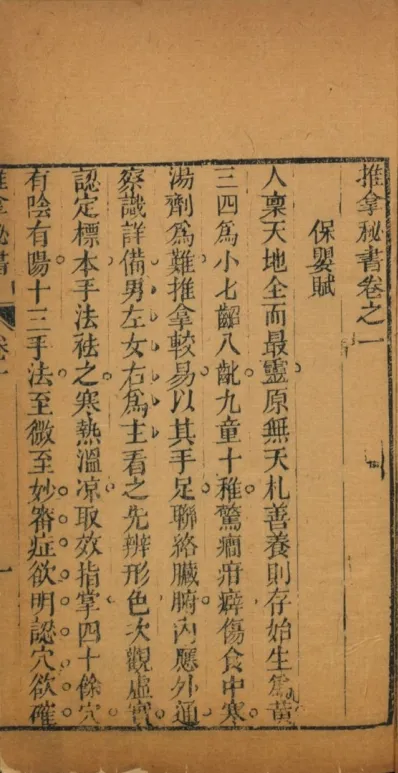 推拿秘書卷之一
保嬰賦
人稟天地全而最靈。原無天札善養則存始生爲黃
三四爲小七齠八齔九童十稚驚癎疳癖傷食中寒。
湯劑爲難推拿較易。以其手足。聯絡臟腑。內應外通
察識詳備男左女右爲主看之先辨形色次觀虛實。
認定標本手法祛之。寒熱溫凉。取效指掌四十餘穴。
有陰有陽。十三手法至微至妙。審症欲明。認穴欲確。
推拿秘書 卷一 一